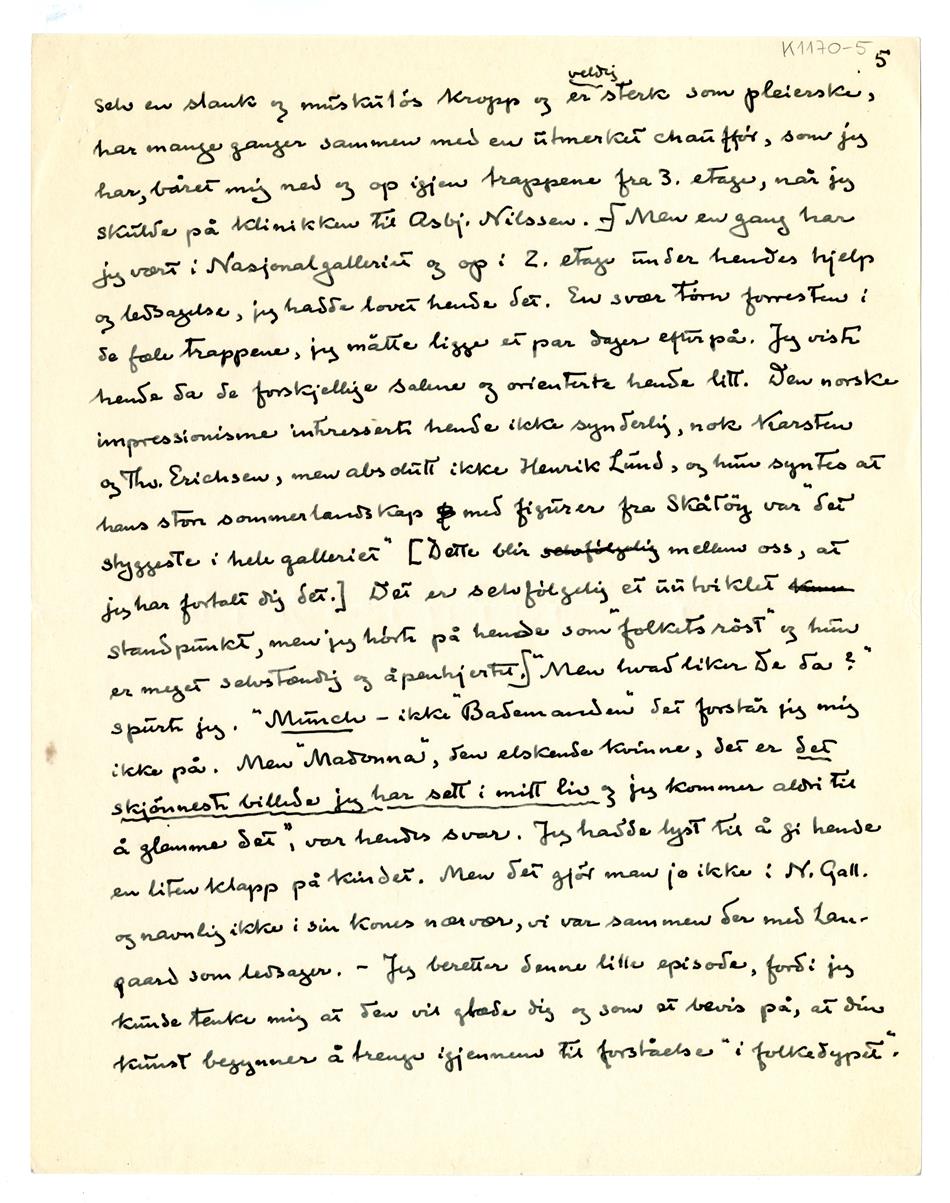 K1170-5
5
selv en slank og muskuløs kropp og er veldig sterk som pleierske,
har mange ganger sammen med en utmerket chauffør, som jeg
har, båret mig ned og op igjen trappene fra 3. etage, når jeg
skulde på klinikken til Asbj. Nilssen. –] Men en gang har
jeg vært i Nasjonalgalleriet og op i 2. etage under hendes hjelp
og ledsagelse, jeg hadde lovet hende det. En svær törn forresten i
de fæle trappene, jeg måtte ligge et par dager efterpå. Jeg viste
hende da de forskjellige salene og orienterte hende litt. Den norske
impressionisme interesserte hende ikke synderlig, nok Karsten
og Thv. Erichsen, men absolutt ikke Henrik Lund, og hun syntes at
hans store sommerlandskap med figurer fra Skåtöy var "det
styggeste i hele galleriet" [Dette blir selvfölgelig mellem oss, at
jeg har fortalt dig det.] Det er selvfölgelig et uutviklet
standpunkt, men jeg hörte på hende som "folkets röst" og hun
er meget selvstændig og åpenhjertet.] "Men hvad liker De da?"
spurte jeg. "Munch – ikke "Bademanden" det forstår jeg mig
ikke på. Men "Madonna", den elskende kvinne, det er det
skjönneste billede jeg har sett i mitt liv og jeg kommer aldri til
å glemme det", var hendes svar. Jeg hadde lyst til å gi hende
en liten klapp på kindet. Men det gjör man jo ikke i N. Gall.
og navnlig ikke i sin kones nærvær, vi var sammen der med Lan-
gaard som ledsager. – Jeg beretter denne lille episode, fordi jeg
kunde tenke mig at den vil glæde dig og som et bevis på, at din
kunst begynner å trenge igjennem til forståelse "i folkedypet".